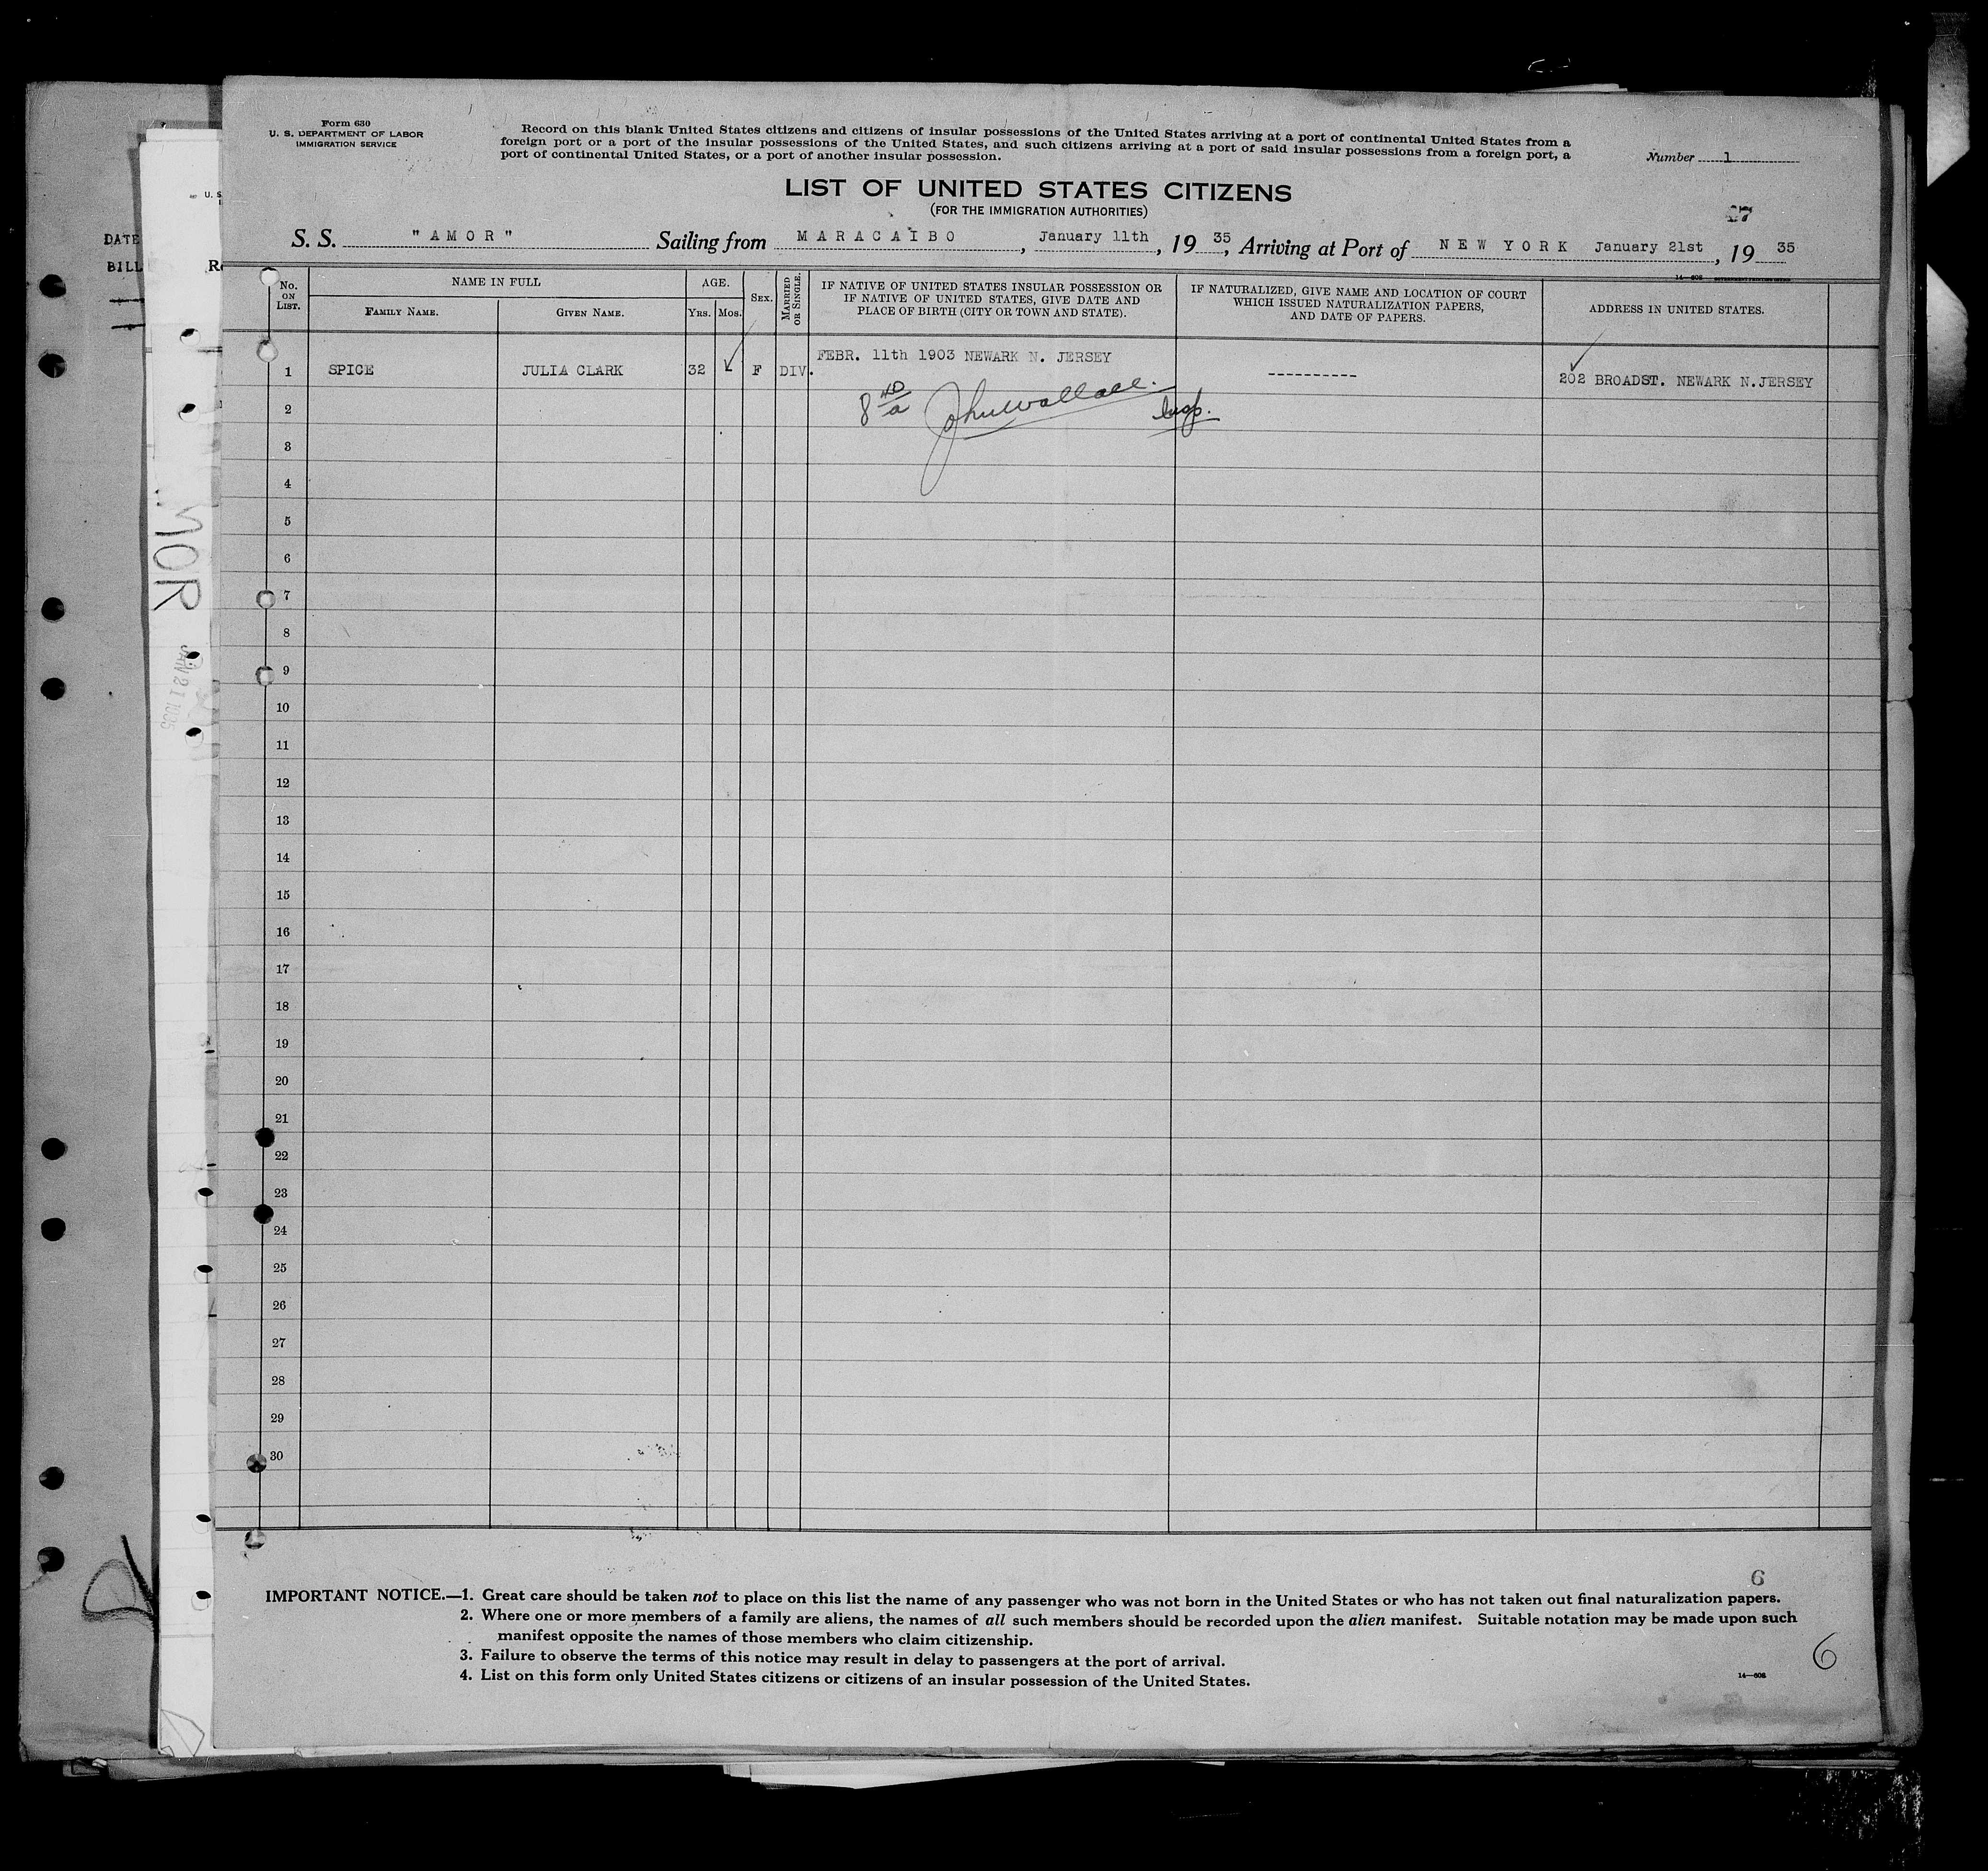 Form 630
U. S. DEPARTMENT OF LABOR
IMMIGRATION SERVICE
Record on this blank United States citizens and citizens of insular possessions of the United States arriving at a port of continental United States from a
foreign port or a port of the insular possessions of the United States, and such citizens arriving at a port of said insular possessions from a foreign port, a
port of continental United States, or a port of another insular possession.
Number 1
LIST OF UNITED STATES CITIZENS
(FOR THE IMMIGRATION AUTHORITIES)
S. S. "AMOR" Sailing from MARACAIBO, January 11th, 19 35, Arriving at Port of NEW YORK January 21st, 19 35
14—608
No. ON LIST.
NAME IN FULL
FAMILY NAME.
GIVEN NAME.
AGE.
Yrs. Mos.
SEX.
MARRIED OR SINGLE.
IF NATIVE OF UNITED STATES INSULAR POSSESSION OR
IF NATIVE OF UNITED STATES, GIVE DATE AND
PLACE OF BIRTH (CITY OR TOWN AND STATE).
IF NATURALIZED, GIVE NAME AND LOCATION OF COURT
WHICH ISSUED NATURALIZATION PAPERS,
AND DATE OF PAPERS.
ADDRESS IN UNITED STATES.
1 SPICE JULIA CLARK 32 F DIV. FEBR. 11th 1903 NEWARK N. JERSEY ---------- 202 BROADST. NEWARK N.JERSEY
2 John Wallace Insp.
3
4
5
6
7
8
9
10
11
12
13
14
15
16
17
18
19
20
21
22
23
24
25
26
27
28
29
30
IMPORTANT NOTICE.—1. Great care should be taken not to place on this list the name of any passenger who was not born in the United States or who has not taken out final naturalization papers.
2. Where one or more members of a family are aliens, the names of all such members should be recorded upon the alien manifest. Suitable notation may be made upon such
manifest opposite the names of those members who claim citizenship.
3. Failure to observe the terms of this notice may result in delay to passengers at the port of arrival.
4. List on this form only United States citizens or citizens of an insular possession of the United States.
6
14—608
6
DATE
BILL
JAN 21 1935